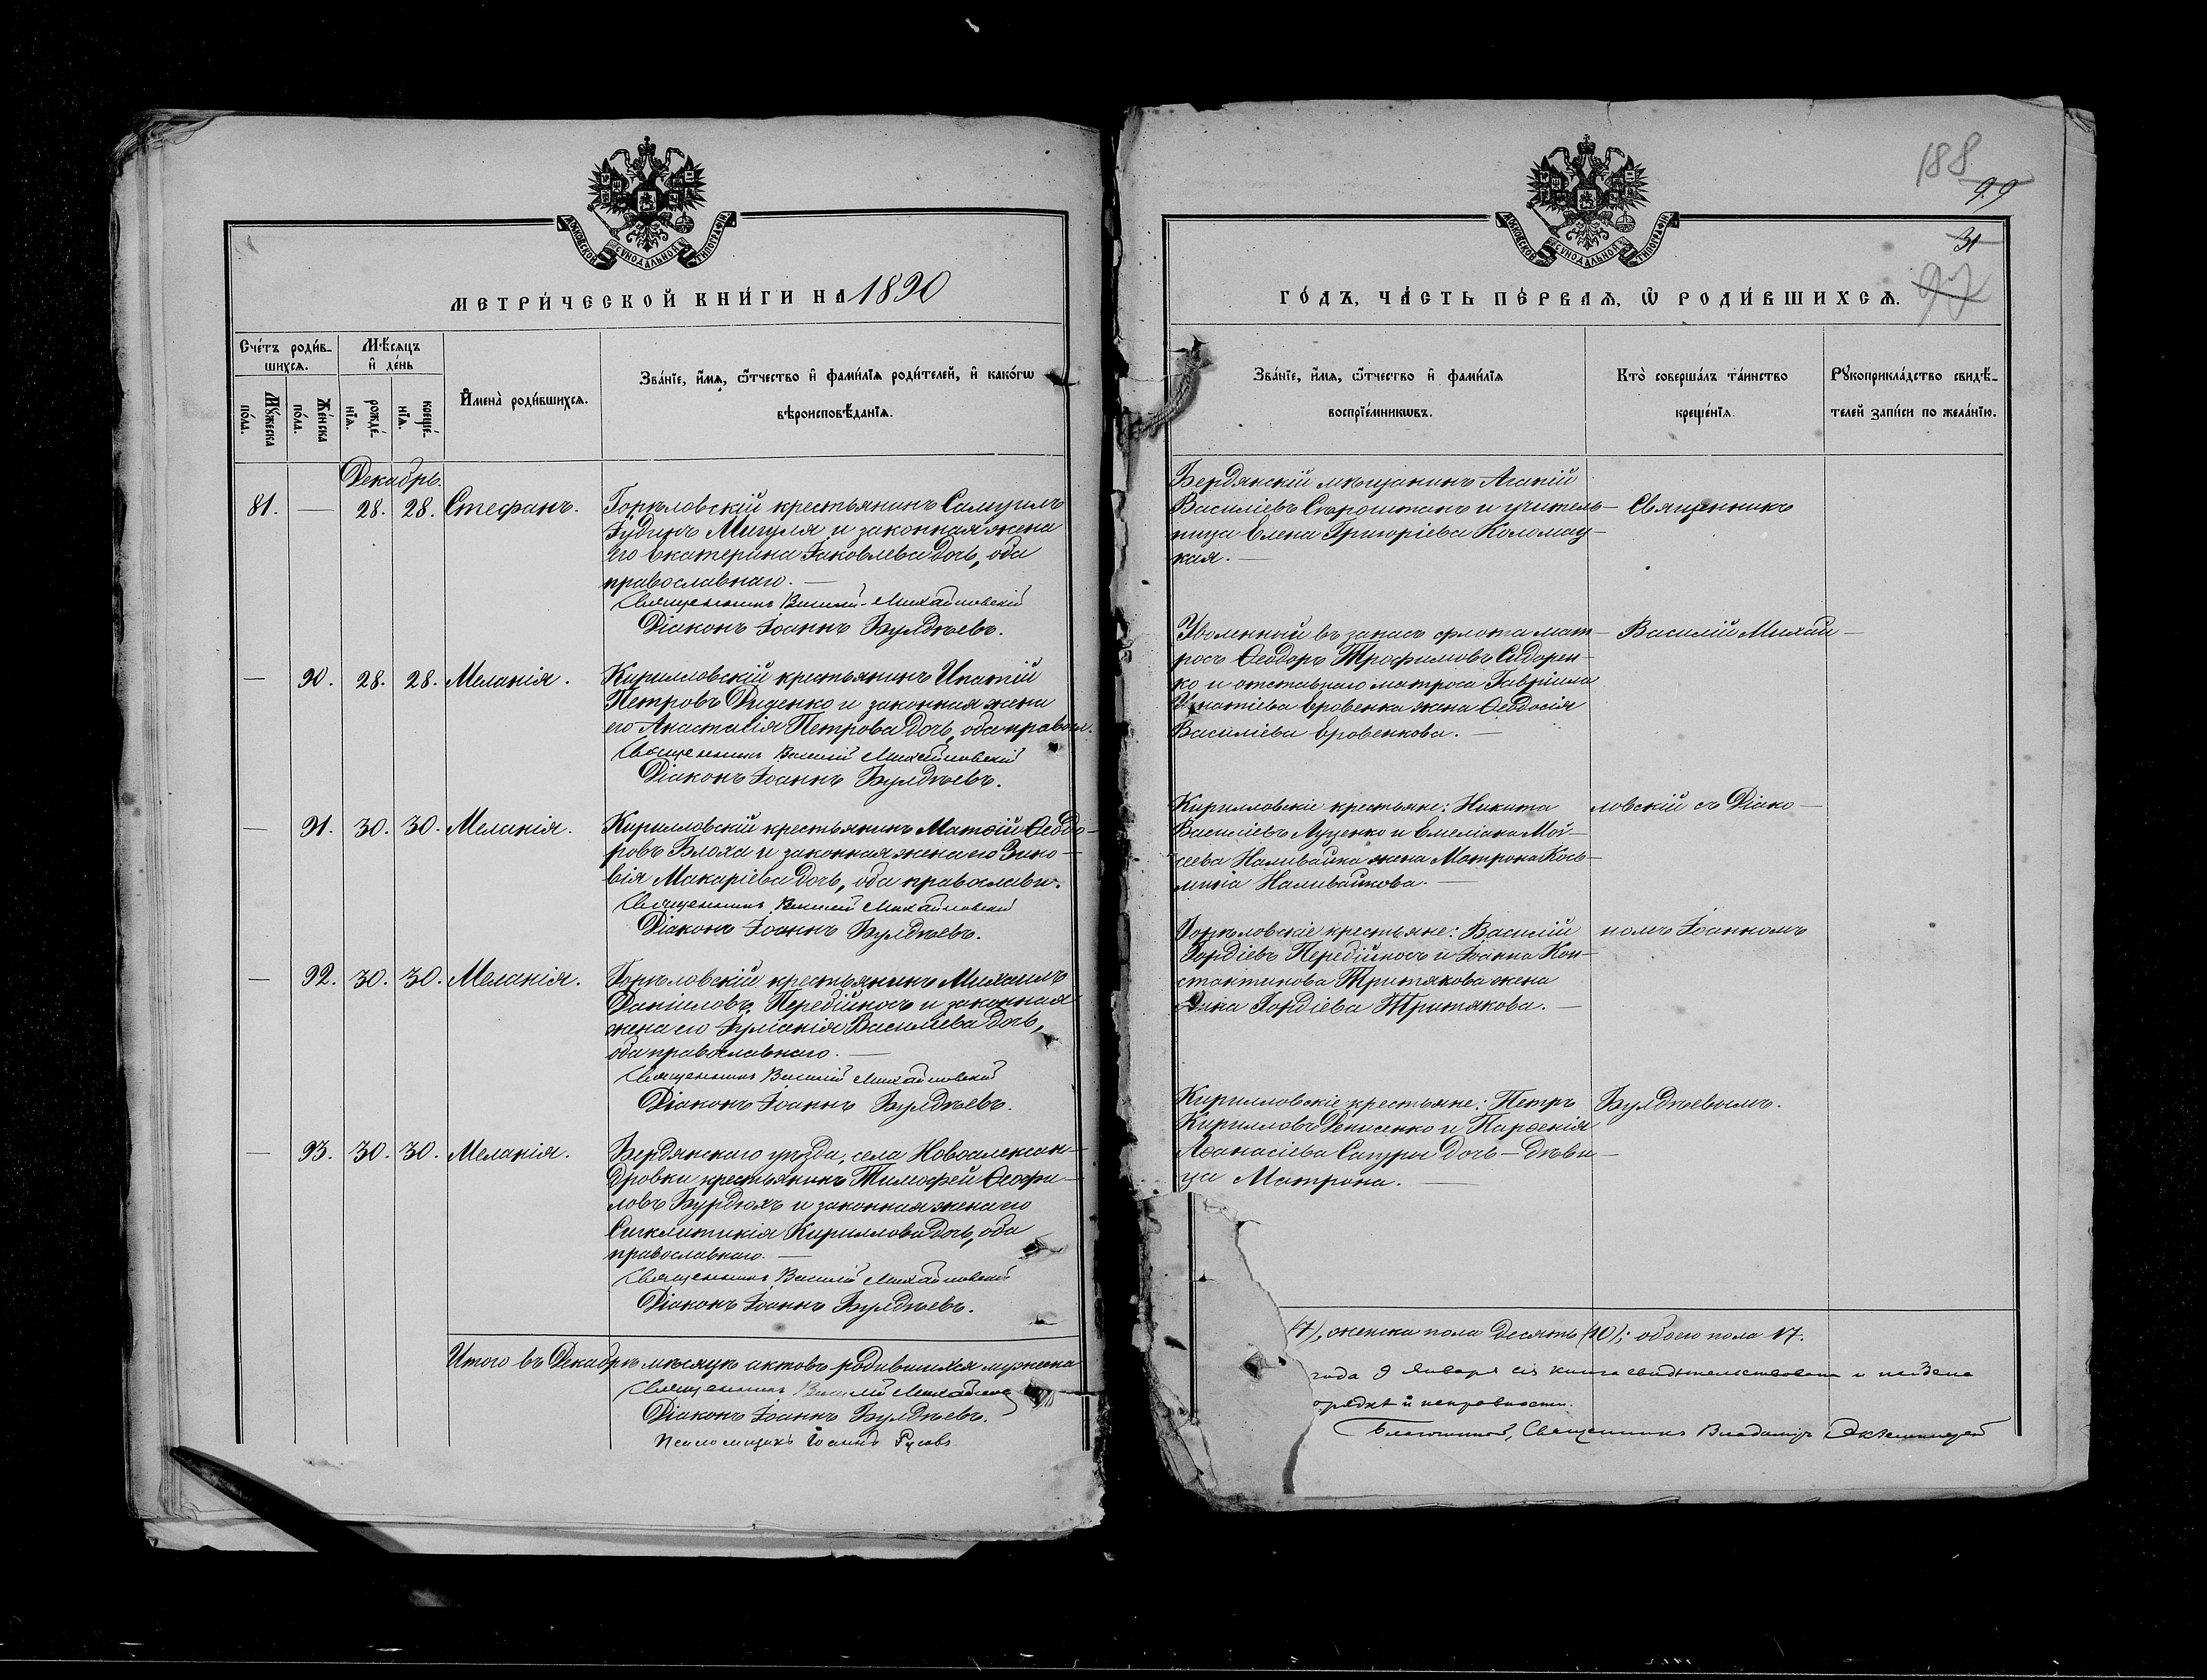 МОСКОВСКОЙ СѴНОДАЛЬНОЙ ТИПОГРАФІИ
МЕТРИ́ЧЕСКОЙ КНИ́ГИ НА 1890
Сче́тъ роди́в-
шихсѧ.
Мѣ́сѧцъ
и҆ де́нь
Мꙋ́жеска
по́ла.
Же́нска
по́ла.
рожде́-
нїѧ.
креще́-
нїѧ.
И҆мена̀ роди́вшихсѧ.
Зва́нїе, и҆́мѧ, ѻ҆́тчество и҆ фами́лїѧ роди́телей, и҆ како́гѡ
вѣроисповѣ́данїѧ.
Декабрь.
81. — 28. 28. Стефанъ.
Горѣловскій крестьянинъ Самуилъ
Іудинъ Мигуля и законная жена
его Екатерина Іаковлева дочь, оба
православнаго. —
Священникъ Василій Михайловскій
Діаконъ Іоаннъ Булдѣевъ.
— 90. 28. 28. Меланія.
Кирилловскій крестьянинъ Ипатій
Петровъ Диденко и законная жена
его Анастасія Петрова дочь, оба правосл.
Священникъ Василій Михайловскій
Діаконъ Іоаннъ Булдѣевъ.
— 91. 30. 30. Меланія.
Кирилловскій крестьянинъ Матѳій Ѳеодо-
ровъ Блоха и законная жена его Зино-
вія Макаріева дочь, оба православн.
Священникъ Василій Михайловскій
Діаконъ Іоаннъ Булдѣевъ.
— 92. 30. 30. Меланія.
Горѣловскій крестьянинъ Михаилъ
Даніиловъ Передійносъ и законная
жена его Іуліанія Василіева дочь,
оба православнаго. —
Священникъ Василій Михайловскій
Діаконъ Іоаннъ Булдѣевъ.
— 93. 30. 30. Меланія.
Бердянскаго уѣзда, села Новоалексан-
дровки крестьянинъ Тимоѳей Ѳеофи-
ловъ Бурдюхъ и законная жена его
Сигклитикія Кириллова дочь, оба
православнаго. —
Священникъ Василій Михайловскій
Діаконъ Іоаннъ Булдѣевъ.
Итого въ Декабрѣ мѣсяцѣ актовъ родившихся мужеска
Священникъ Василій
Діаконъ Іоаннъ Булдѣевъ.
Псаломщикъ Іоаннъ Русовъ
188
99
31
97
МОСКОВСКОЙ СѴНОДАЛЬНОЙ ТИПОГРАФІИ
ГО́ДЪ, ЧА́СТЬ ПЕ́РВАѦ, Ѡ҆ РОДИ́ВШИХСѦ.
Зва́нїе, и҆́мѧ, ѻ҆́тчество и҆ фами́лїѧ
воспрїе́мникѡвъ.
Кто̀ соверша́лъ та́инство
креще́нїѧ.
Рꙋкоприкла́дство свидѣ́-
телей за́писи по жела́нїю.
Бердянскій мѣщанинъ Агапій
Василіевъ Старошганъ и учитель-
ница Елена Григоріева Коломац-
кая. —
Священникъ
Уволенный въ запасъ флота мат-
росъ Ѳеодоръ Трофимовъ Сидорен-
ко и отставнаго матроса Гавріила
Игнатіева Еровенка жена Ѳеодосія
Василіева Еровенкова. —
Василій Михай-
Кирилловскіе крестьяне: Никита
Василіевъ Луценко и Емеліана Мой-
сеева Наливайка жена Матрона Кось-
мина Наливайкова. —
ловскій съ Діако-
Горѣловскіе крестьяне: Василій
Гордіевъ Передійносъ и Іоанна Кон-
стантинова Тритякова жена
Анна Гордіева Тритякова. —
номъ Іоанномъ
Кирилловскіе крестьяне: Петръ
Кирилловъ Денисенко и Парѳенія
Аѳанасіева Сагуры дочь — дѣви-
ца Матрона. —
Булдѣевымъ.
(7), женска пола десять (10); обоего пола 17.
года 9 Января сія книга свидѣтельствована и найдена
орядкѣ и исправности.
Благочинный, Священникъ Владиміръ